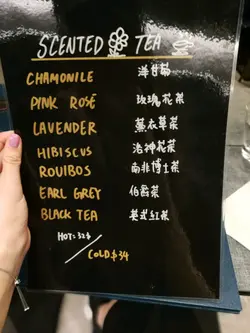 SCENTED TEA
CHAMONILE 洋甘菊
PINK ROSÉ 玫瑰花茶
LAVENDER 薰衣草茶
HIBISCUS 洛神花茶
ROUIBOS 南非博士茶
EARL GREY 伯爵茶
BLACK TEA 英式紅茶
HOT: 32$
COLD $34